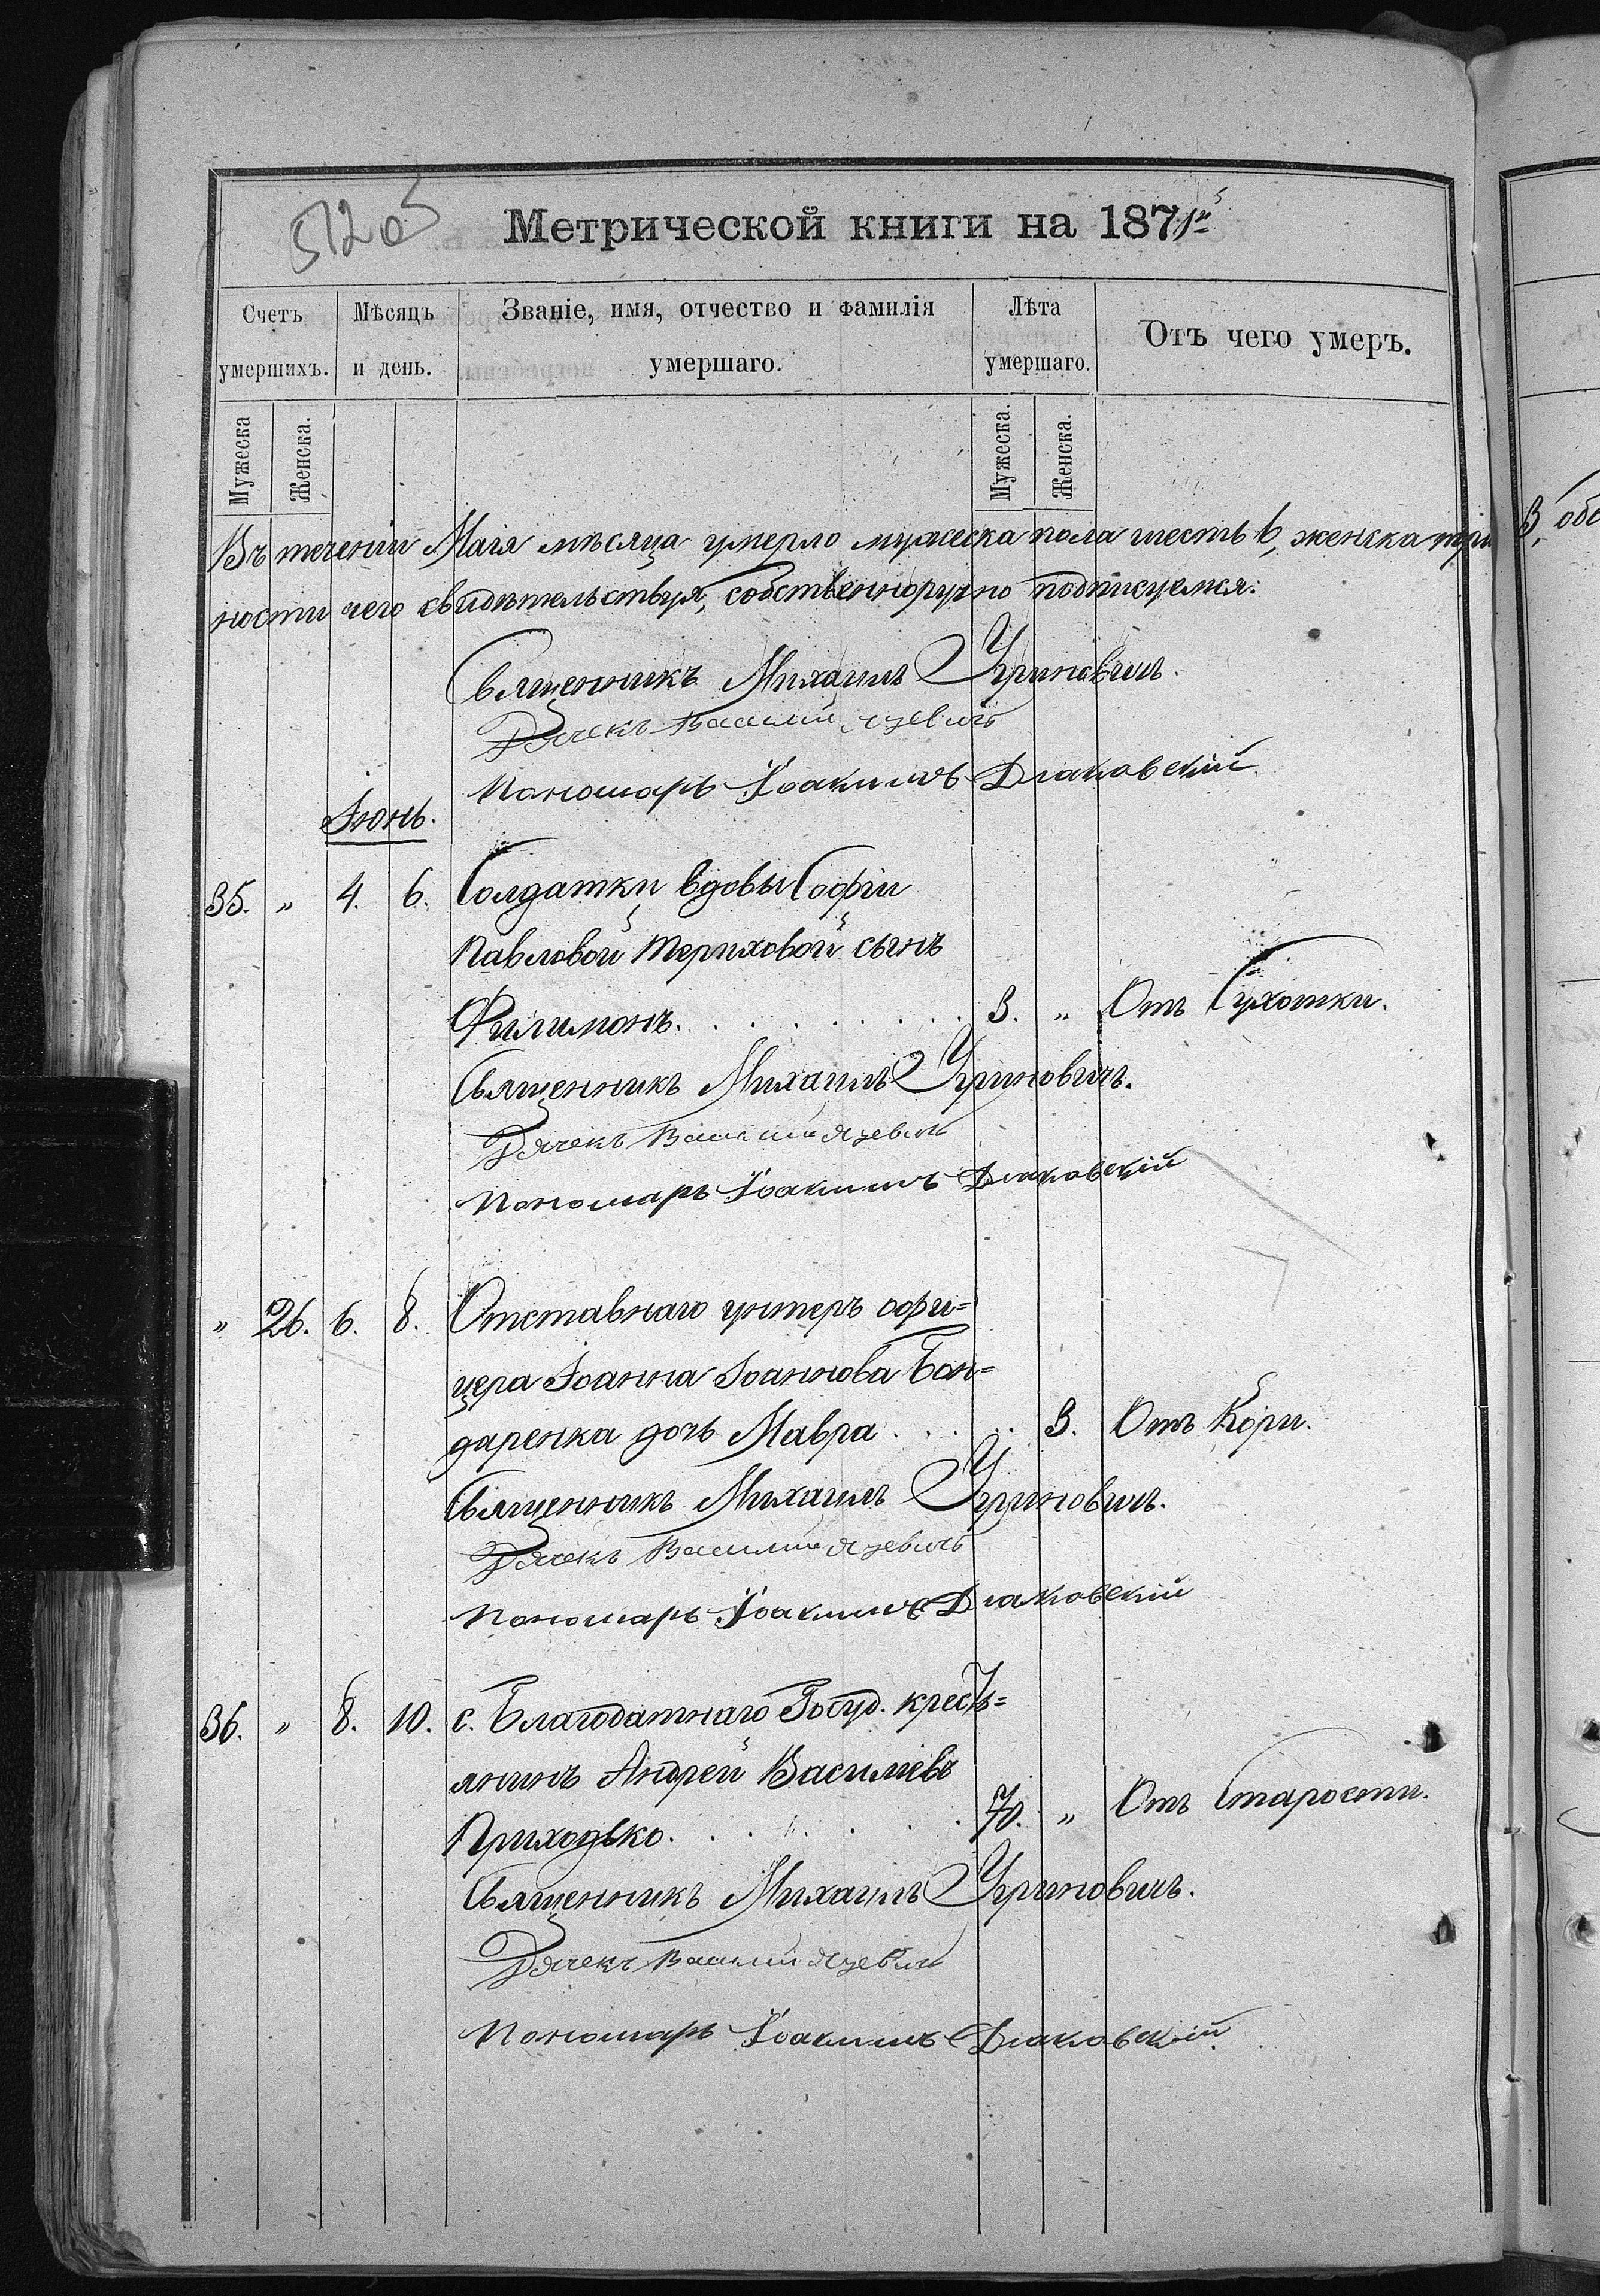 512об
Метрической книги на 1871й
Счетъ умершихъ.
Мѣсяцъ и день.
Званіе, имя, отчество и фамилія умершаго.
Лѣта умершаго.
Отъ чего умеръ.
Мужеска
Женска.
Мужеска.
Женска.
Въ теченіи Маія мѣсяца умерло мужеска пола шесть 6, женска три
3, обо
ности чего свидѣтельствуя, собственноручно подписуемся:
Священникъ Михаилъ Угриновичъ.
Дячекъ Василій Яцевичъ
Пономарь Іоакимъ Діаковскій
Іюнь.
35. „ 4. 6. Солдатки вдовы Софіи
Павловой Териховой сынъ
Филимонъ. . . . . . . . 3. „ Отъ Сухотки.
Священникъ Михаилъ Угриновичъ.
Дячекъ Василій Яцевичъ
Пономарь Іоакимъ Діаковскій
„ 26. 6. 8. Отставнаго унтеръ офи=
цера Іоанна Іоаннова Бон=
даренка дочь Мавра . . . . 3. Отъ Кори.
Священникъ Михаилъ Угриновичъ.
Дячекъ Василій Яцевичъ
Пономарь Іоакимъ Діаковскій
36. „ 8. 10. с. Благодатнаго Госуд. кресть=
янинъ Андрей Василіевъ
Приходько. . . . . . . 70. „ Отъ Старости.
Священникъ Михаилъ Угриновичъ.
Дячекъ Василій Яцевичъ
Пономарь Іоакимъ Діаковскій.